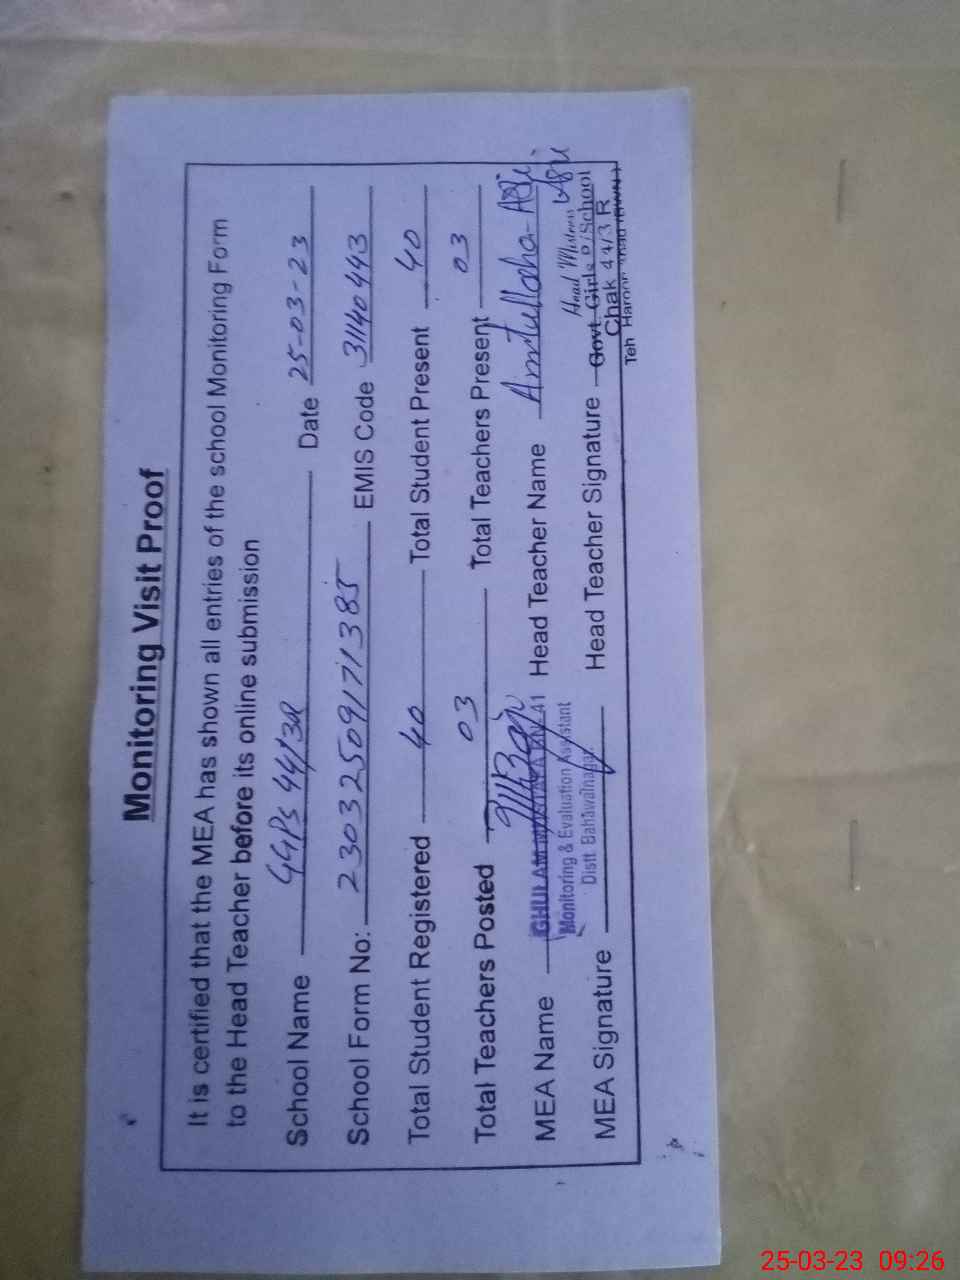 Monitoring Visit Proof
It is certified that the MEA has shown all entries of the school Monitoring Form
to the Head Teacher before its online submission
School Name GGPS 44/3R Date 25-03-23
School Form No: 23032509171385 EMIS Code 31140443
Total Student Registered 40 Total Student Present 40
Total Teachers Posted 03 Total Teachers Present 03
MEA Name GHULAM 41 Head Teacher Name Amtullaha
Monitoring & Evaluation Assistant
Distt Bahawalnagar.
MEA Signature Head Teacher Signature
Head Mistress
Govt. Girls P/School
Chak 44/3 R
Teh Haroon
25-03-23 09:26